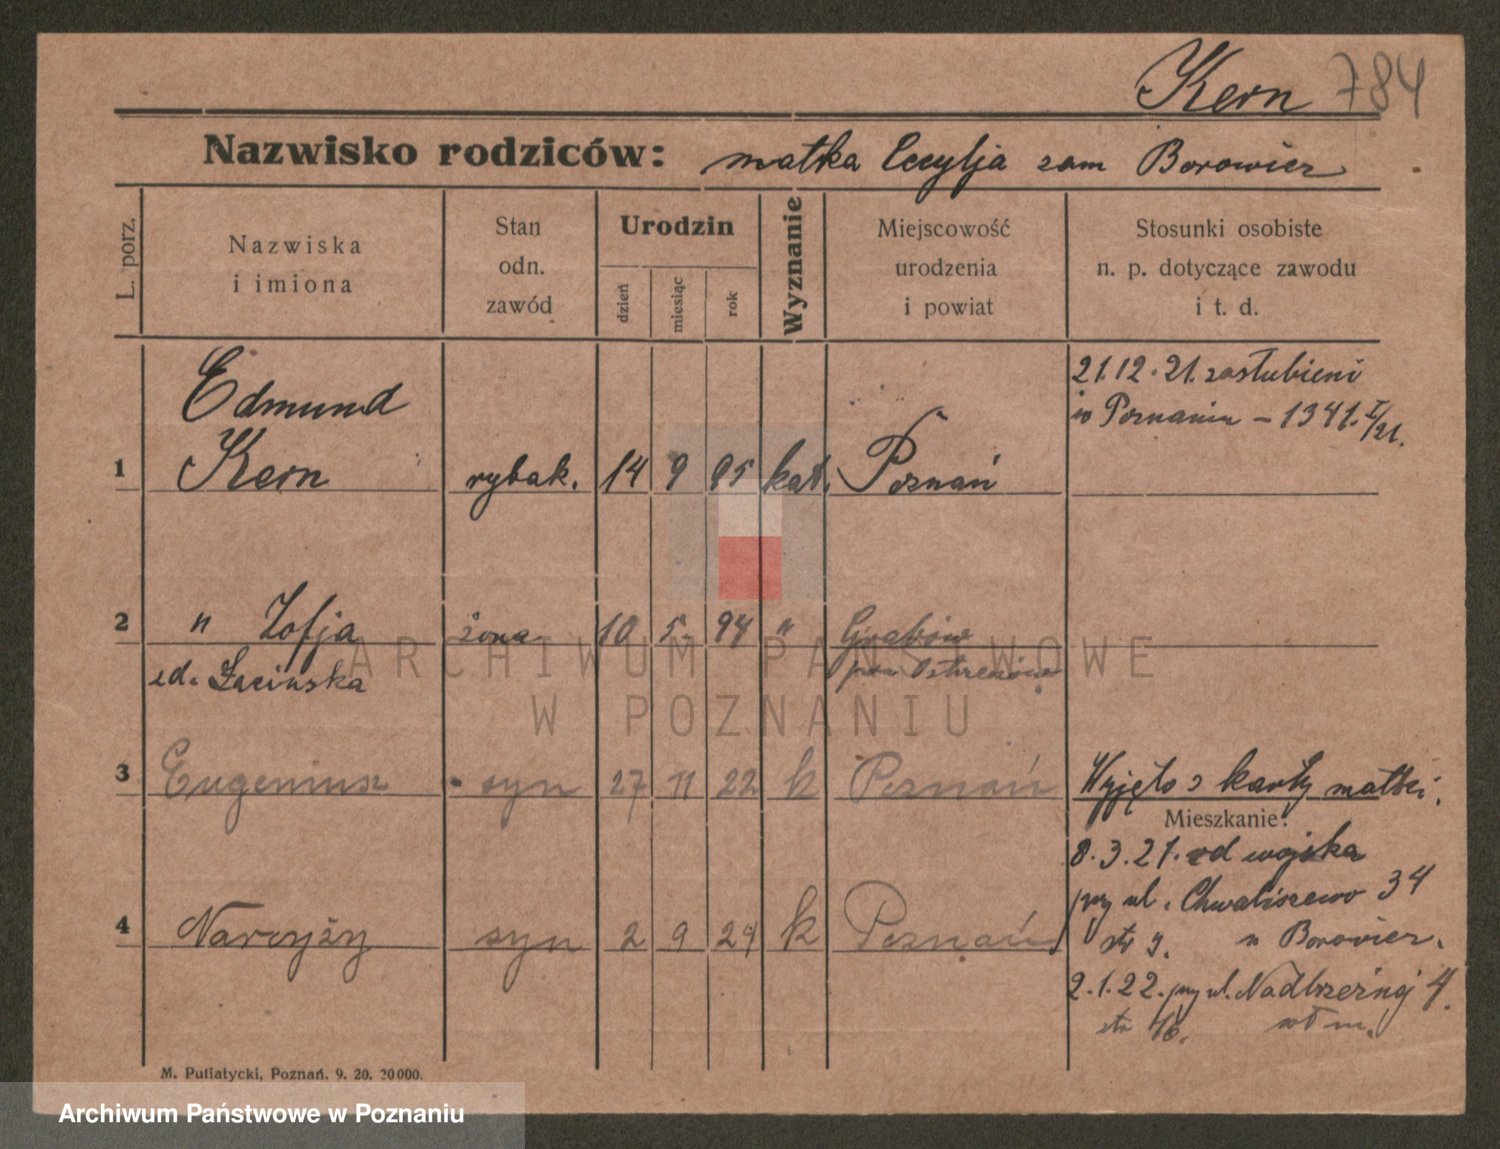 Kern 784
Nazwisko rodziców: matka Cecylja zam Borowicz
L. porz.
Nazwiska
i imiona
Stan
odn.
zawód
Urodzin
dzień
miesiąc
rok
Wyznanie
Miejscowość
urodzenia
i powiat
Stosunki osobiste
n. p. dotyczące zawodu
i t. d.
21.12.21. zaślubieni
w Poznaniu – 1341. I/21.
Edmund
1 Kern rybak. 14 9 95 kat. Poznań
2 " Zofja żona 10 5. 94 " Grabów
zd. Łacińska pow. Ostrzeszów
3 Eugeniusz syn 27 11 22 k Poznań Wyjęto z karty matki.
Mieszkanie:
8.3.21. od wojska
przy ul. Chwaliszewo 34
str 9. u Borowicz.
4 Narcyży syn 2 9 24 k Poznań
2.1.22. przy ul. Nadbrzeżnej 4.
str 16. wł m.
M. Putiatycki, Poznań. 9. 20. 20000.
ARCHIWUM PAŃSTWOWE
W POZNANIU
Archiwum Państwowe w Poznaniu